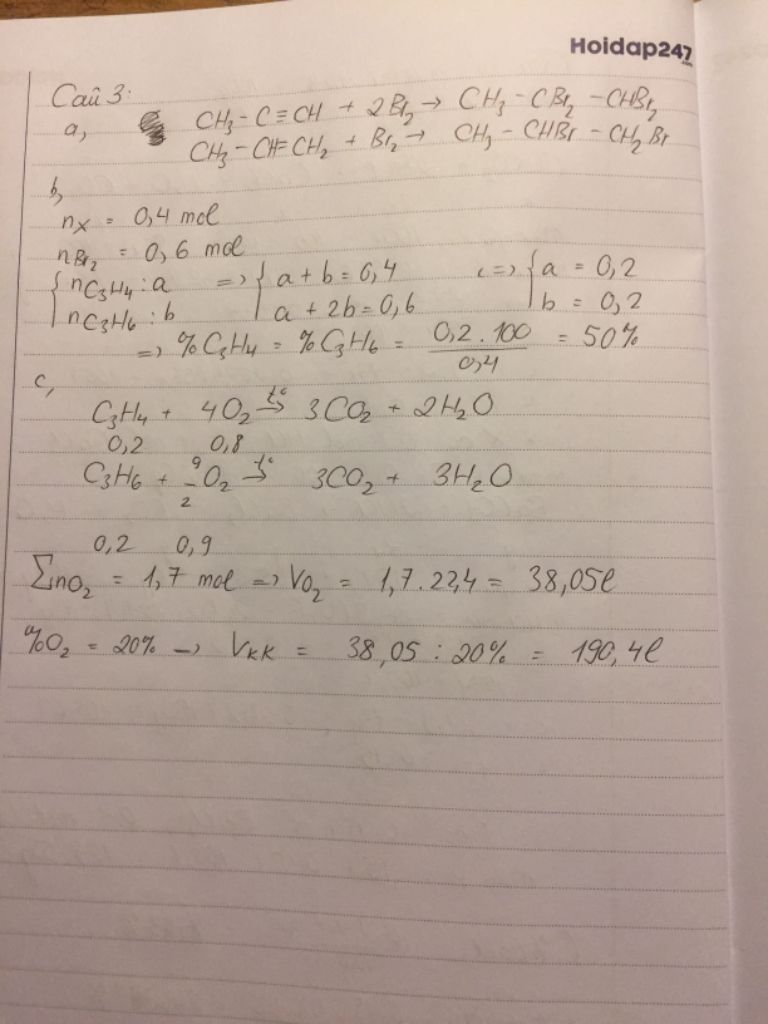 Hoidap247
.com
Câu 3:
a, CH₃ - C ≡ CH + 2Br₂ → CH₃ - CBr₂ - CHBr₂
CH₃ - CH = CH₂ + Br₂ → CH₃ - CHBr - CH₂Br
b,
nX = 0,4 mol
nBr₂ = 0,6 mol
{ nC₃H₄ : a => { a + b = 0,4 <=> { a = 0,2
nC₃H₆ : b a + 2b = 0,6 b = 0,2
=> %C₃H₄ = %C₃H₆ = 0,2 . 100 / 0,4 = 50%
c,
C₃H₄ + 4O₂ t°→ 3CO₂ + 2H₂O
0,2 0,8
C₃H₆ + 9/2 O₂ t°→ 3CO₂ + 3H₂O
0,2 0,9
∑nO₂ = 1,7 mol => VO₂ = 1,7 . 22,4 = 38,05l
%O₂ = 20% → VKK = 38,05 : 20% = 190,4l